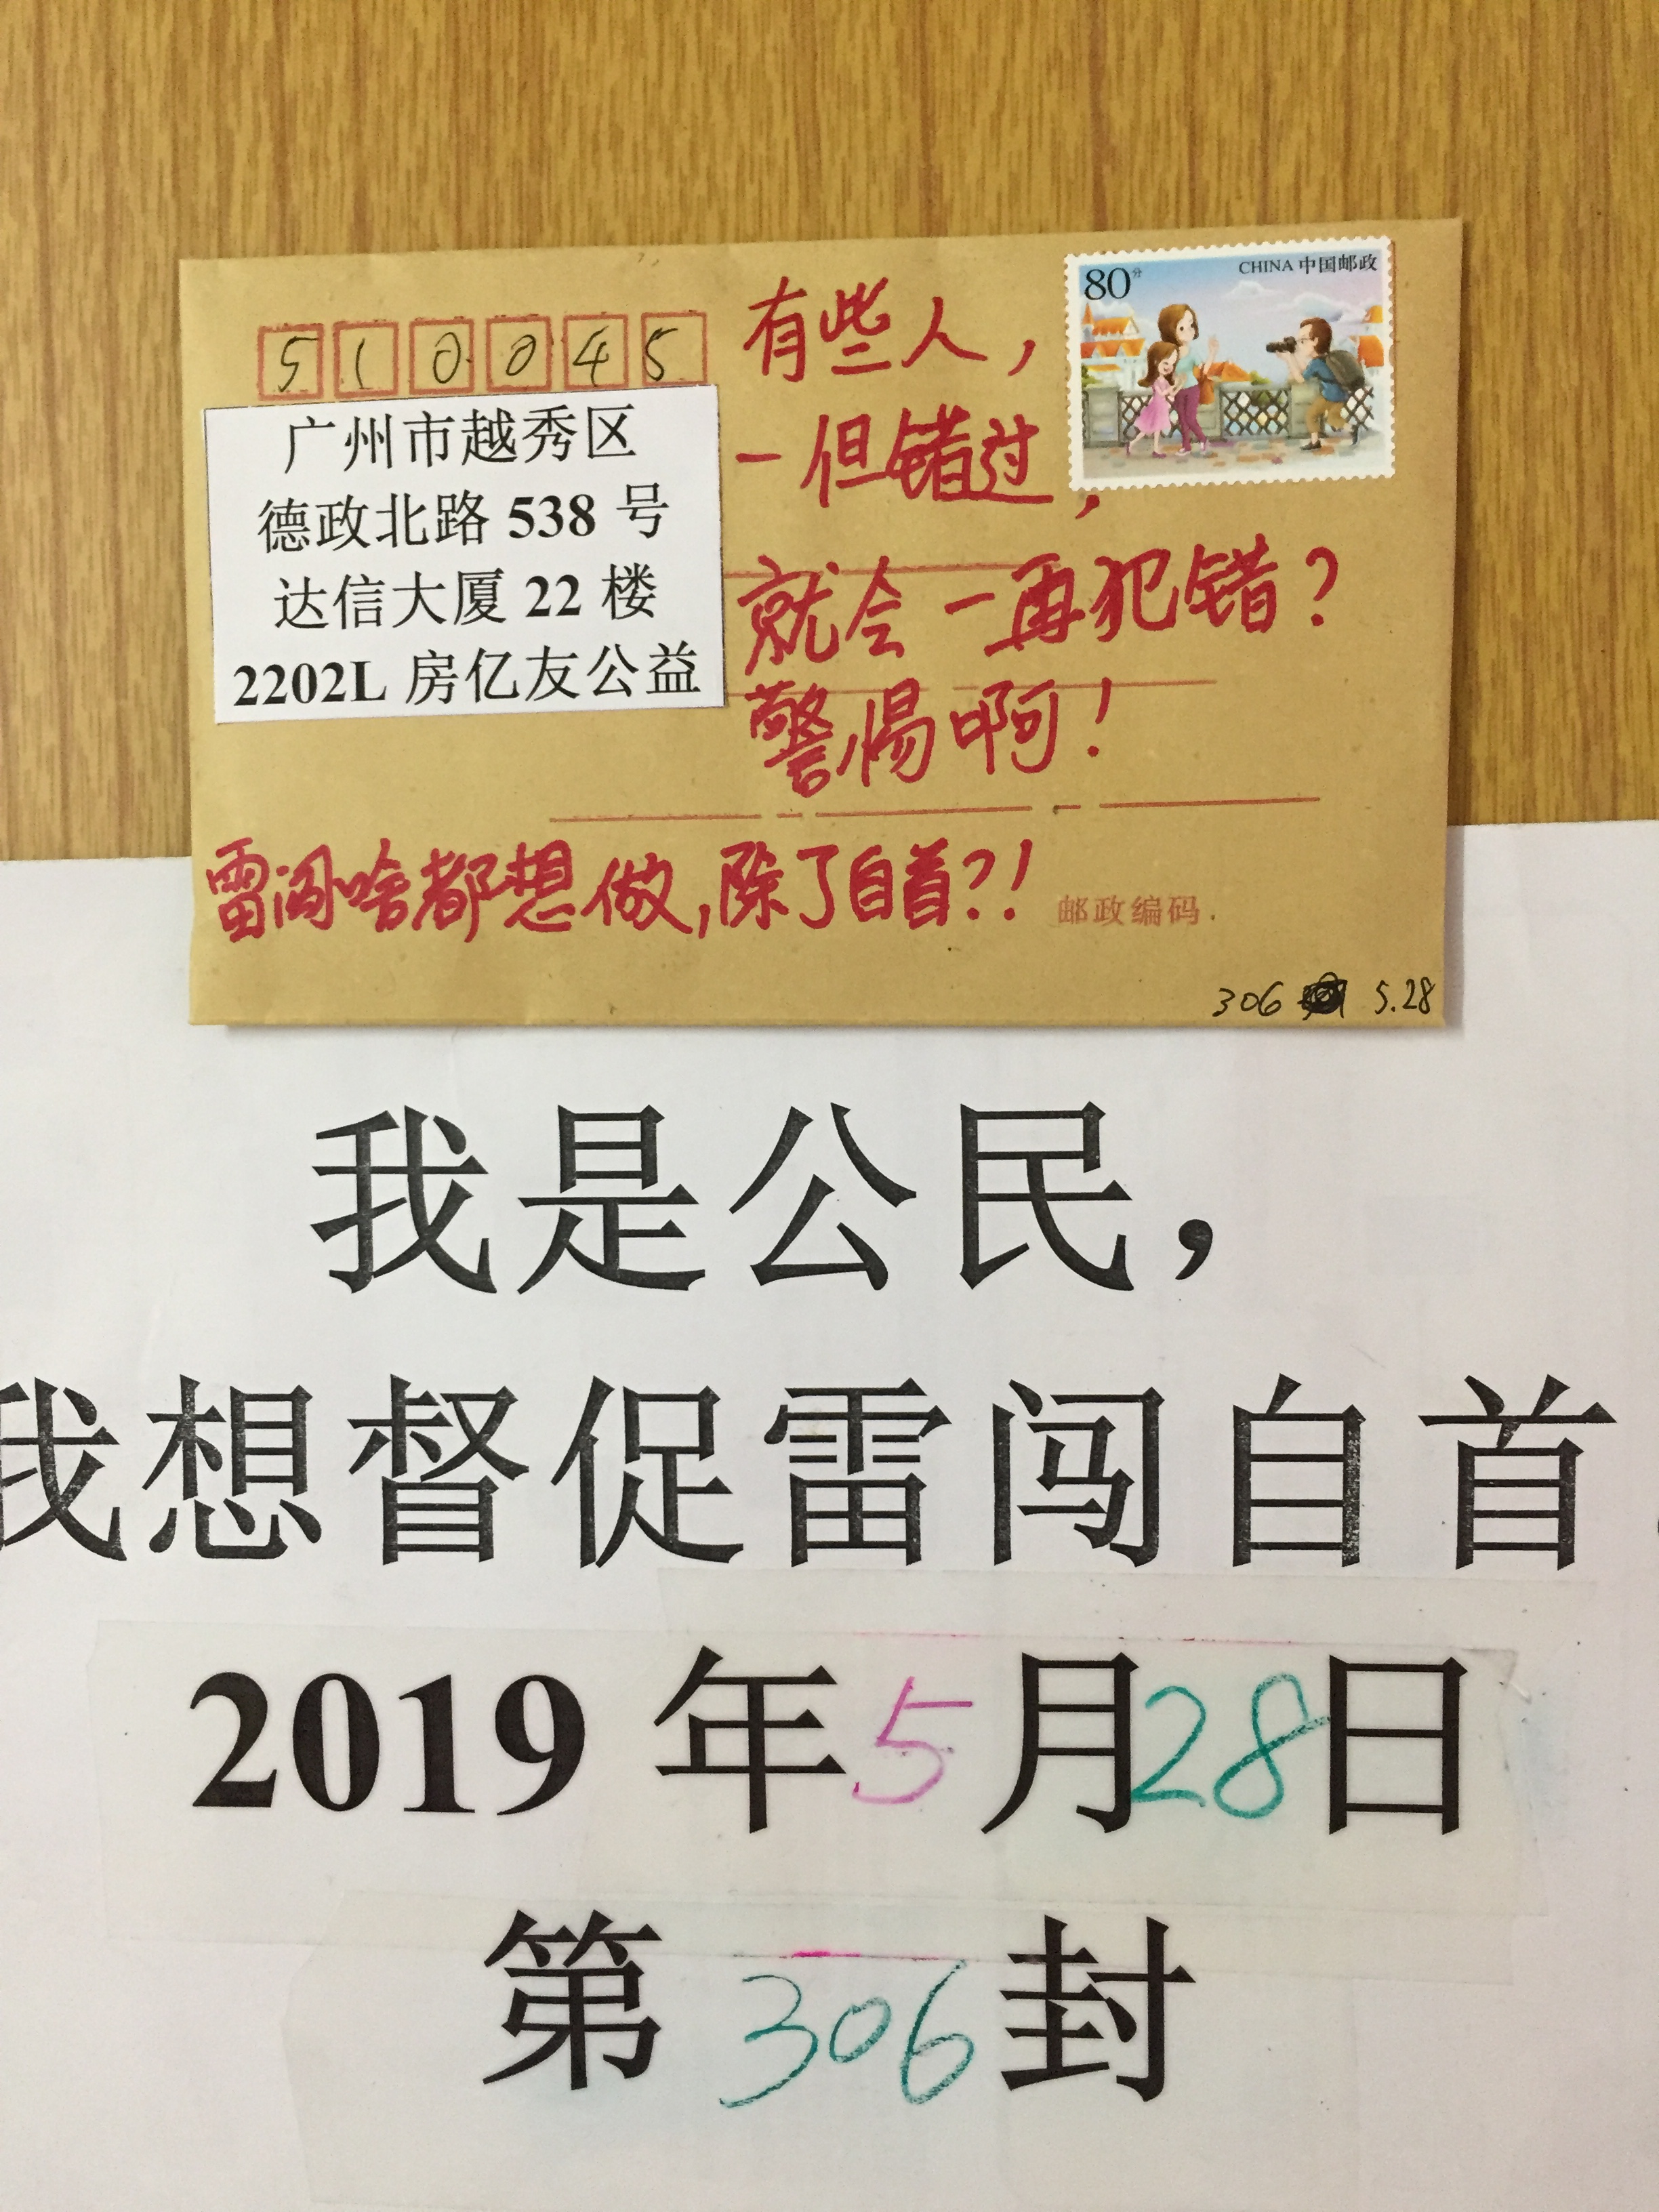 510045
广州市越秀区
德政北路 538 号
达信大厦 22 楼
2202L 房亿友公益
80分
CHINA 中国邮政
有些人，
一但错过，
就会一再犯错？
警惕啊！
雷闯啥都想做，除了自首？！
邮政编码
306 5.28
我是公民，
我想督促雷闯自首
2019 年 5 月 28 日
第 306 封